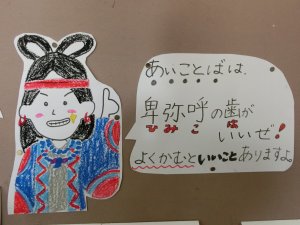 あいことばは、
卑弥呼の歯が
ひみこ は
いいぜ！
よくかむといいことありますよ